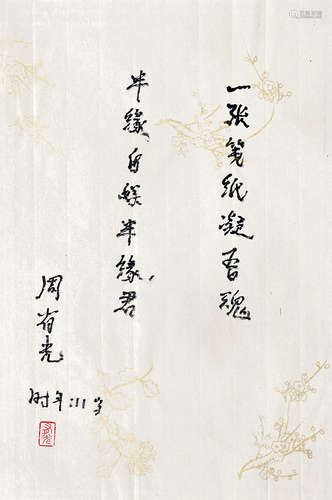 一张笺纸凝香魂
半缘自娱半缘君
周有光
时年111岁